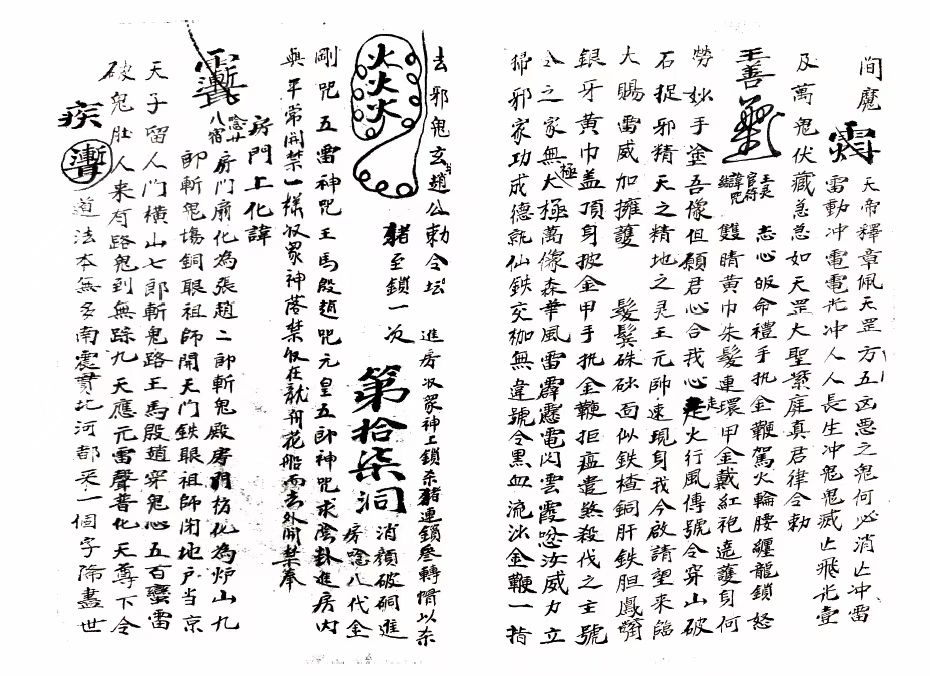 間魔 天帝釋章佩天罡方五凶惡之鬼何必消亡冲雷
雷動冲電電光冲人人長生冲鬼鬼滅亡飛光壹
及萬鬼伏藏急急如天罡大聖紫庭真君律令勅
王善 王天官符諱咒 志心皈命禮手执金鞭駕火輪腰纏龍鎖怒
雙睛黄巾朱髮連環甲金戴紅袍遶護身何
勞妙手塗吾像但願君心合我心走火行風傳號令穿山破
石捉邪精天之精地之灵王元帥速現身我今啟請望來臨
大賜雷威加擁護 髮鬓硃砂面似鉄楂銅肝鉄胆鳳嘴
銀牙黄巾盖頂身披金甲手执金鞭拒瘟遣煞殺伐之主號
令之家無大極極萬像森華風雷霹靂電闪雲霞唸汝威力立
掃邪家功成德就仙鉄交枷無違號令黑血流冰金鞭一指
去邪鬼玄趙公勅令坛 進房收衆神上鎖杀豬連鎖叄轉慣以杀
火火火火火火 豬至鎖一次 第拾柒洞 消願破碙進
房唸八代金
剛咒五雷神咒王馬殷趙咒元皇五郎神咒求陰卦進房内
與平常開禁一樣收衆神落禁收在龍舟花船而去外開禁奉
所門上化諱
唸廿八宿 房门扇化為張趙二郎斬鬼殿房門枋化為炉山九
郎斬鬼塲銅眼祖師開天門鉄眼祖師閉地户当京
天子留人门橫山七郎斬鬼路王馬殷趙穿鬼心五百蠻雷
破鬼肚人来有路鬼到無踪九天應元雷聲普化天尊下令
疾 道法本無多南震貫北河都来一個字降盡世